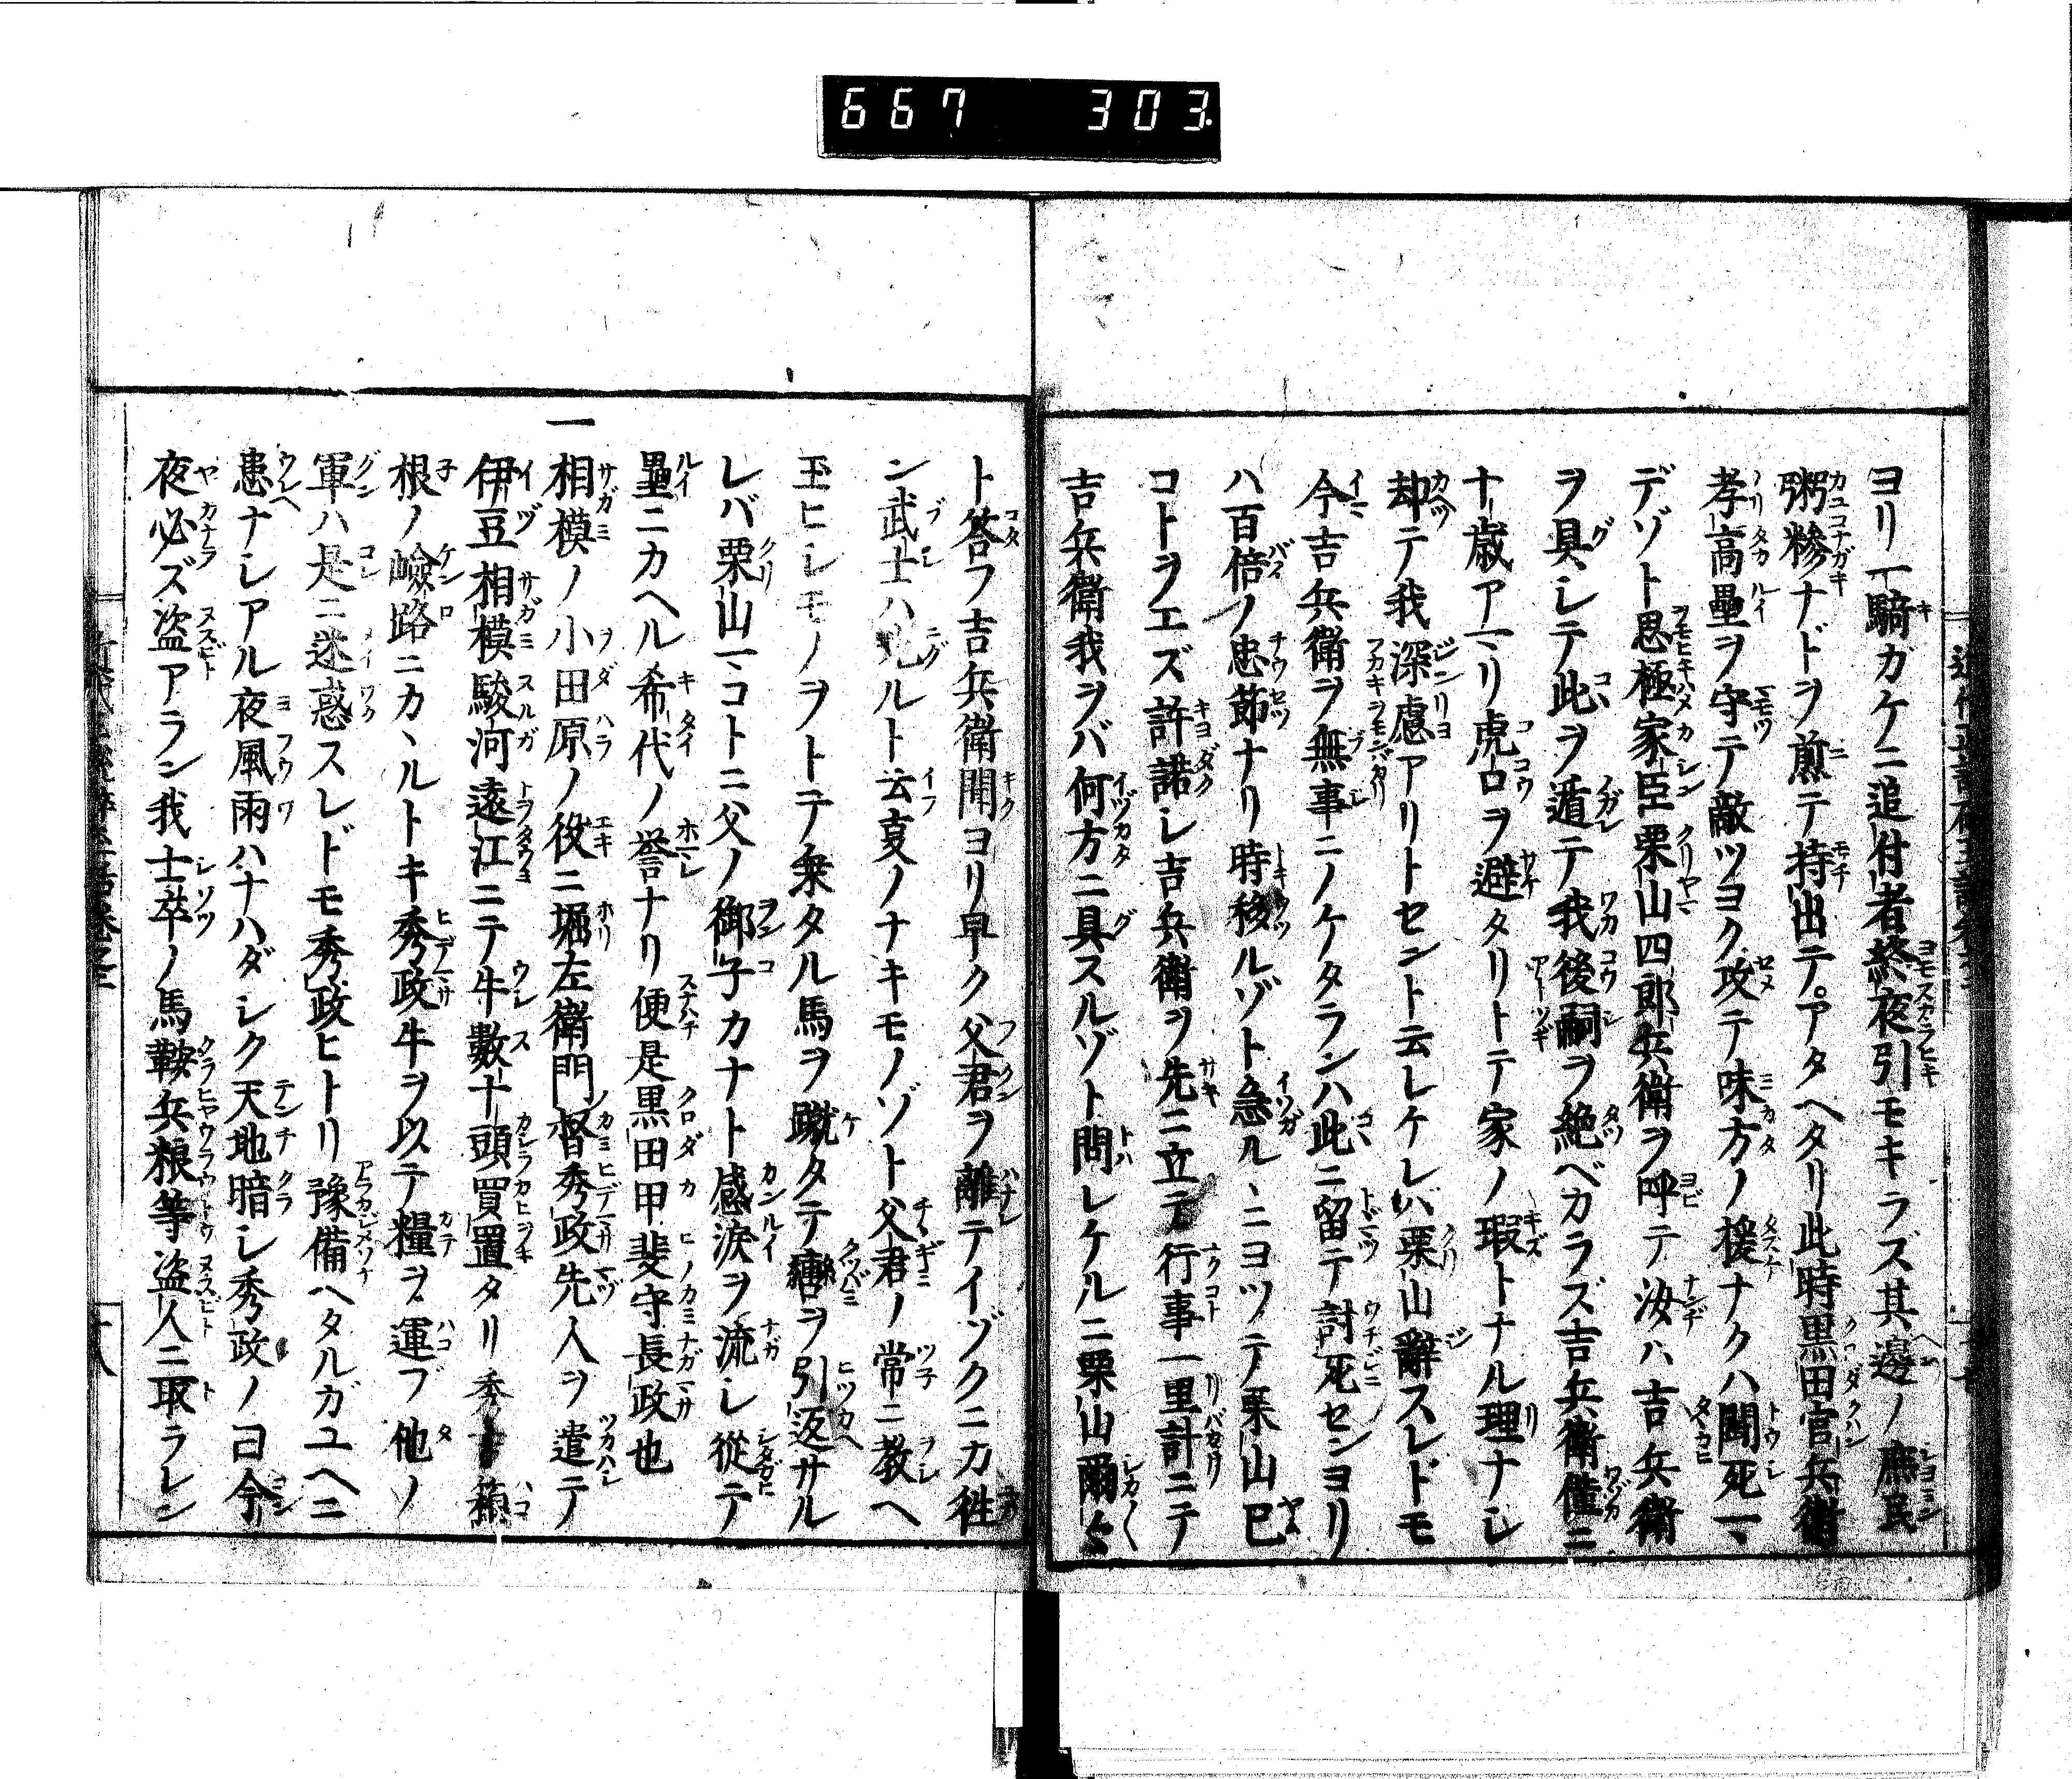 667 303
ヨリ一騎ガケニ追付者終夜引モキラズ其邊ノ庶民
粥糝ナドヲ煎テ持出テアタヘタリ此時黒田官兵衛
孝高壘ヲ守テ敵ツヨク攻テ味方ノ援ナクハ鬪死マ
デゾト思極家臣栗山四郎兵衛ヲ呼テ汝ハ吉兵衛
ヲ具シテ此ヲ遁テ我後嗣ヲ絶ベカラズ吉兵衛僅ニ
十歳アマリ虎口ヲ避タリトテ家ノ瑕トナル理ナシ
却テ我深慮アリトセント云レケレバ栗山辭スレドモ
今吉兵衛ヲ無事ニノケタランハ此ニ留テ討死センヨリ
ハ百倍ノ忠節ナリ時移ルゾト急ルヽニヨツテ栗山已
コトヲエズ許諾シ吉兵衛ヲ先ニ立テ行事一里計ニテ
吉兵衛我ヲバ何方ニ具スルゾト問レケルニ栗山爾々
ト答フ吉兵衛聞ヨリ早ク父君ヲ離テイヅクニカ徃
ン武士ハ迯ルト云夏ノナキモノゾト父君ノ常ニ教ヘ
玉ヒシモノヲトテ乗タル馬ヲ蹴タテ轡ヲ引返サル
レバ栗山マコトニ父ノ御子カナト感淚ヲ流シ從テ
壘ニカヘル希代ノ誉ナリ便是黒田甲斐守長政也
一相模ノ小田原ノ役ニ堀左衛門督秀政先人ヲ遣テ
伊豆相模駿河遠江ニテ牛數十頭買置タリ秀吉箱
根ノ嶮路ニカヽルトキ秀政牛ヲ以テ糧ヲ運ブ他ノ
軍ハ是ニ迷惑スレドモ秀政ヒトリ豫備ヘタルガユヘニ
患ナシアル夜風雨ハナハダシク天地暗シ秀政ノ曰今
夜必ズ盗アラン我士卒ノ馬鞍兵粮等盗人ニ取ラレン
十八